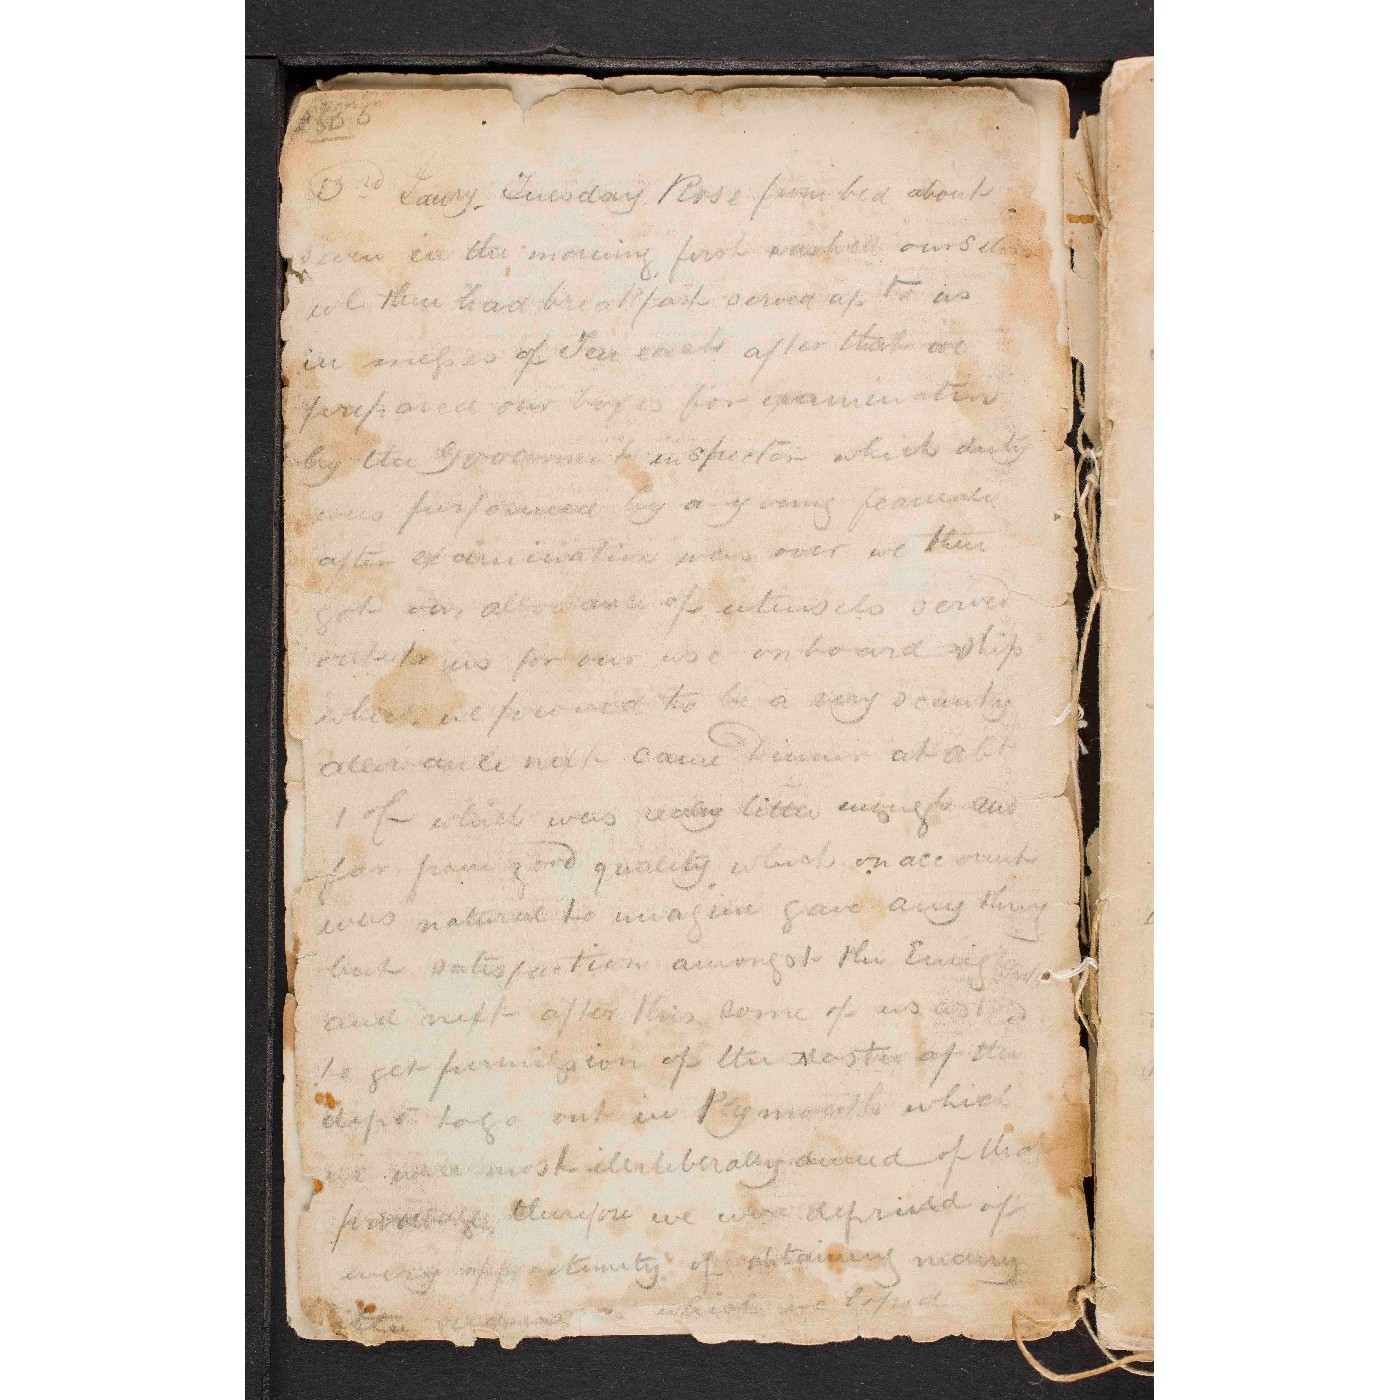 3rd Jany. Tuesday Rose from bed about
seven in the morning first washed ourselves
we then had breakfast served up to us
in messes of Ten each after that we
prepared our boxes for examination
by the Government inspector which duty
was performed by a young feamale
after examination was over we then
got our allowance of utensels served
out to us for our use onboard ship
which we proved to be a very scanty
allowance next came Dinner at abt
1 of which was realy little enough and
far from good quality which on account
was natural to imagine gave any thing
but satisfaction amongst the Emigrants
and next after this some of us asked
to get permission of the Master of the
depot to go out in Plymouth which
we were most illerliberally denied of that
privalege, therefore we were deprived of
every opportunity of obtaining many
little which we hoped